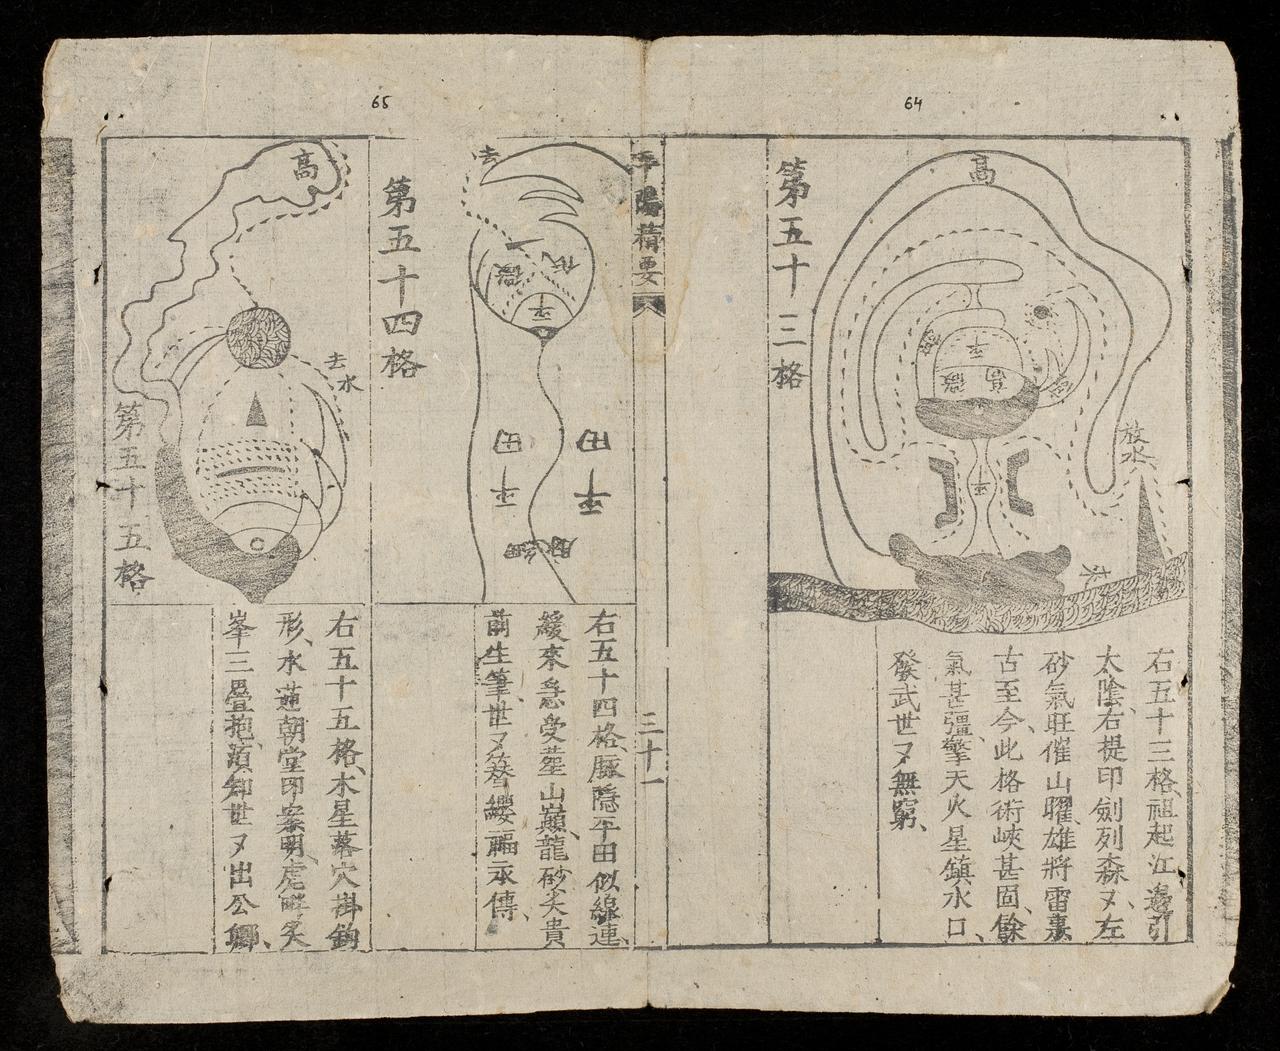 64
第五十三格
高
平
微
高
平
放水
右五十三格、祖起江邊引
太陰、右提印劍列森〻、左
砂氣旺催山曜、雄將雷轟
古至今、此格術峽甚固、餘
氣甚彊、擎天火星鎮水口、
發武世〻無窮、
平陽精要
三十一
65
第五十四格
去
微
平
平田
平田
右五十四格、脈隱平田似線連、
緩來急受葬山巔、龍砂尖貴
前生筆、世〻簪纓福永傳、
第五十五格
高
去水
右五十五格、木星落穴掛鈎
形、水蓮朝堂印案明、虎畔尖
峯三疊抱、須知世〻出公卿、